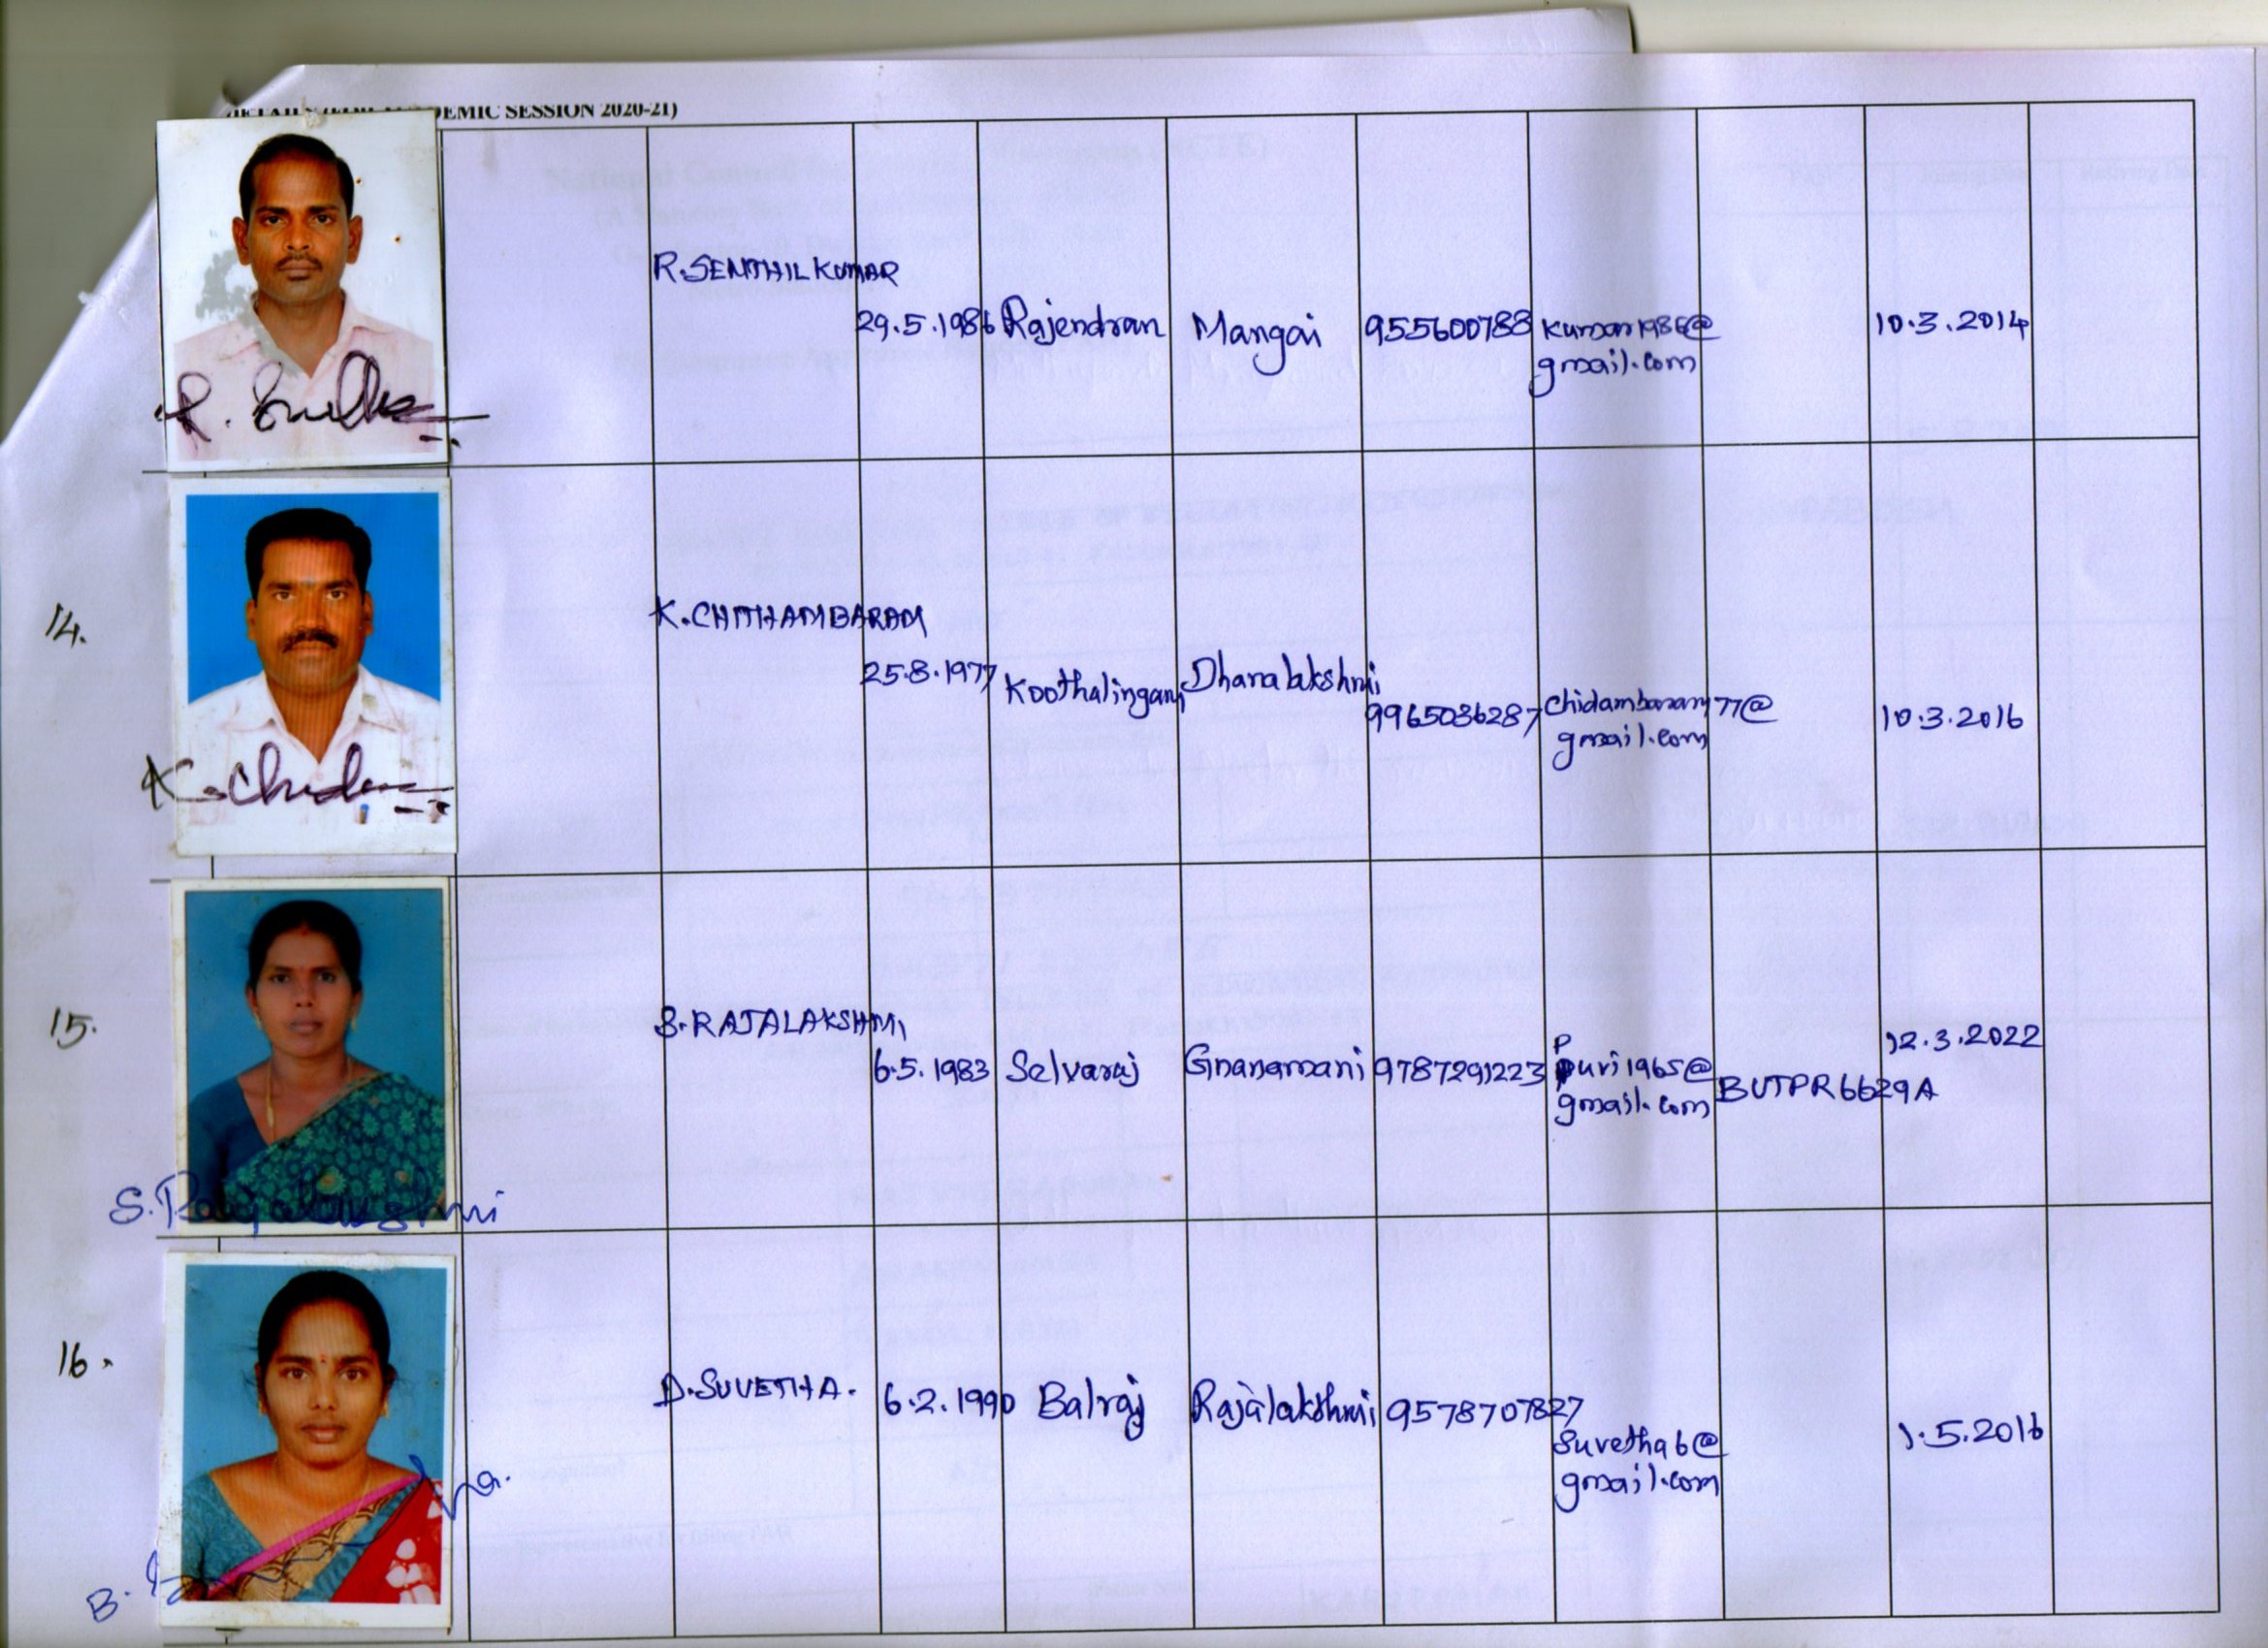 DEMIC SESSION 2020-21)
R. SENTHIL KUMAR
29.5.1986 Rajendran Mangai 955600788 Kumar1986@
gmail.com
10.3.2014
14.
K. CHITHAMBARAM
25.8.1977 Koothalingam Dhanalakshmi
9965036287 Chidambaram77@
gmail.com
10.3.2016
15.
S. RAJALAKSHMI
6.5.1983 Selvaraj Gnanamani 9787291223 Puri1965@
gmail.com
BUTPR6629A
12.3.2022
S. Rajalakshmi
16.
B. SUVETHA.
6.2.1990 Balraj Rajalakshmi 9578707827
Suvetha6@
gmail.com
1.5.2016